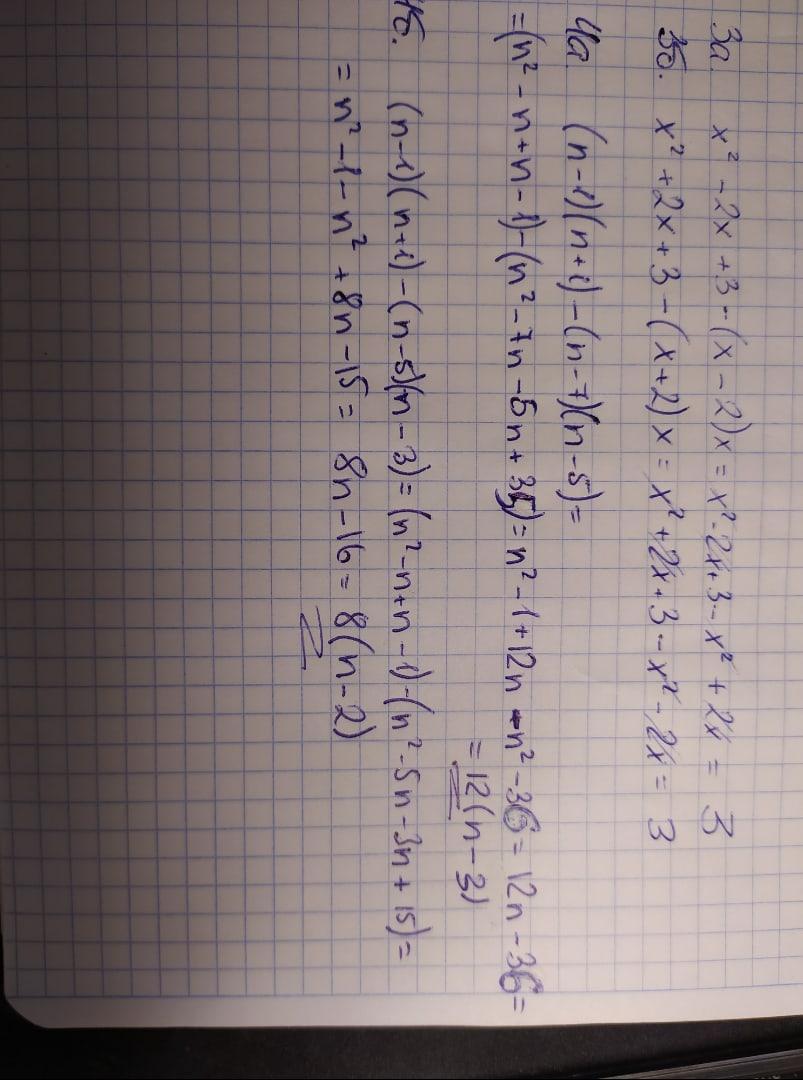 3a. x² - 2x + 3 - (x - 2)x = x² - 2x + 3 - x² + 2x = 3
3б. x² + 2x + 3 - (x + 2)x = x² + 2x + 3 - x² - 2x = 3
4a. (n - 1)(n + 1) - (n - 7)(n - 5) =
= (n² - n + n - 1) - (n² - 7n - 5n + 35) = n² - 1 + 12n - n² - 36 = 12n - 36 =
= 12(n - 3)
4б. (n - 1)(n + 1) - (n - 5)(n - 3) = (n² - n + n - 1) - (n² - 5n - 3n + 15) =
= n² - 1 - n² + 8n - 15 = 8n - 16 = 8(n - 2)